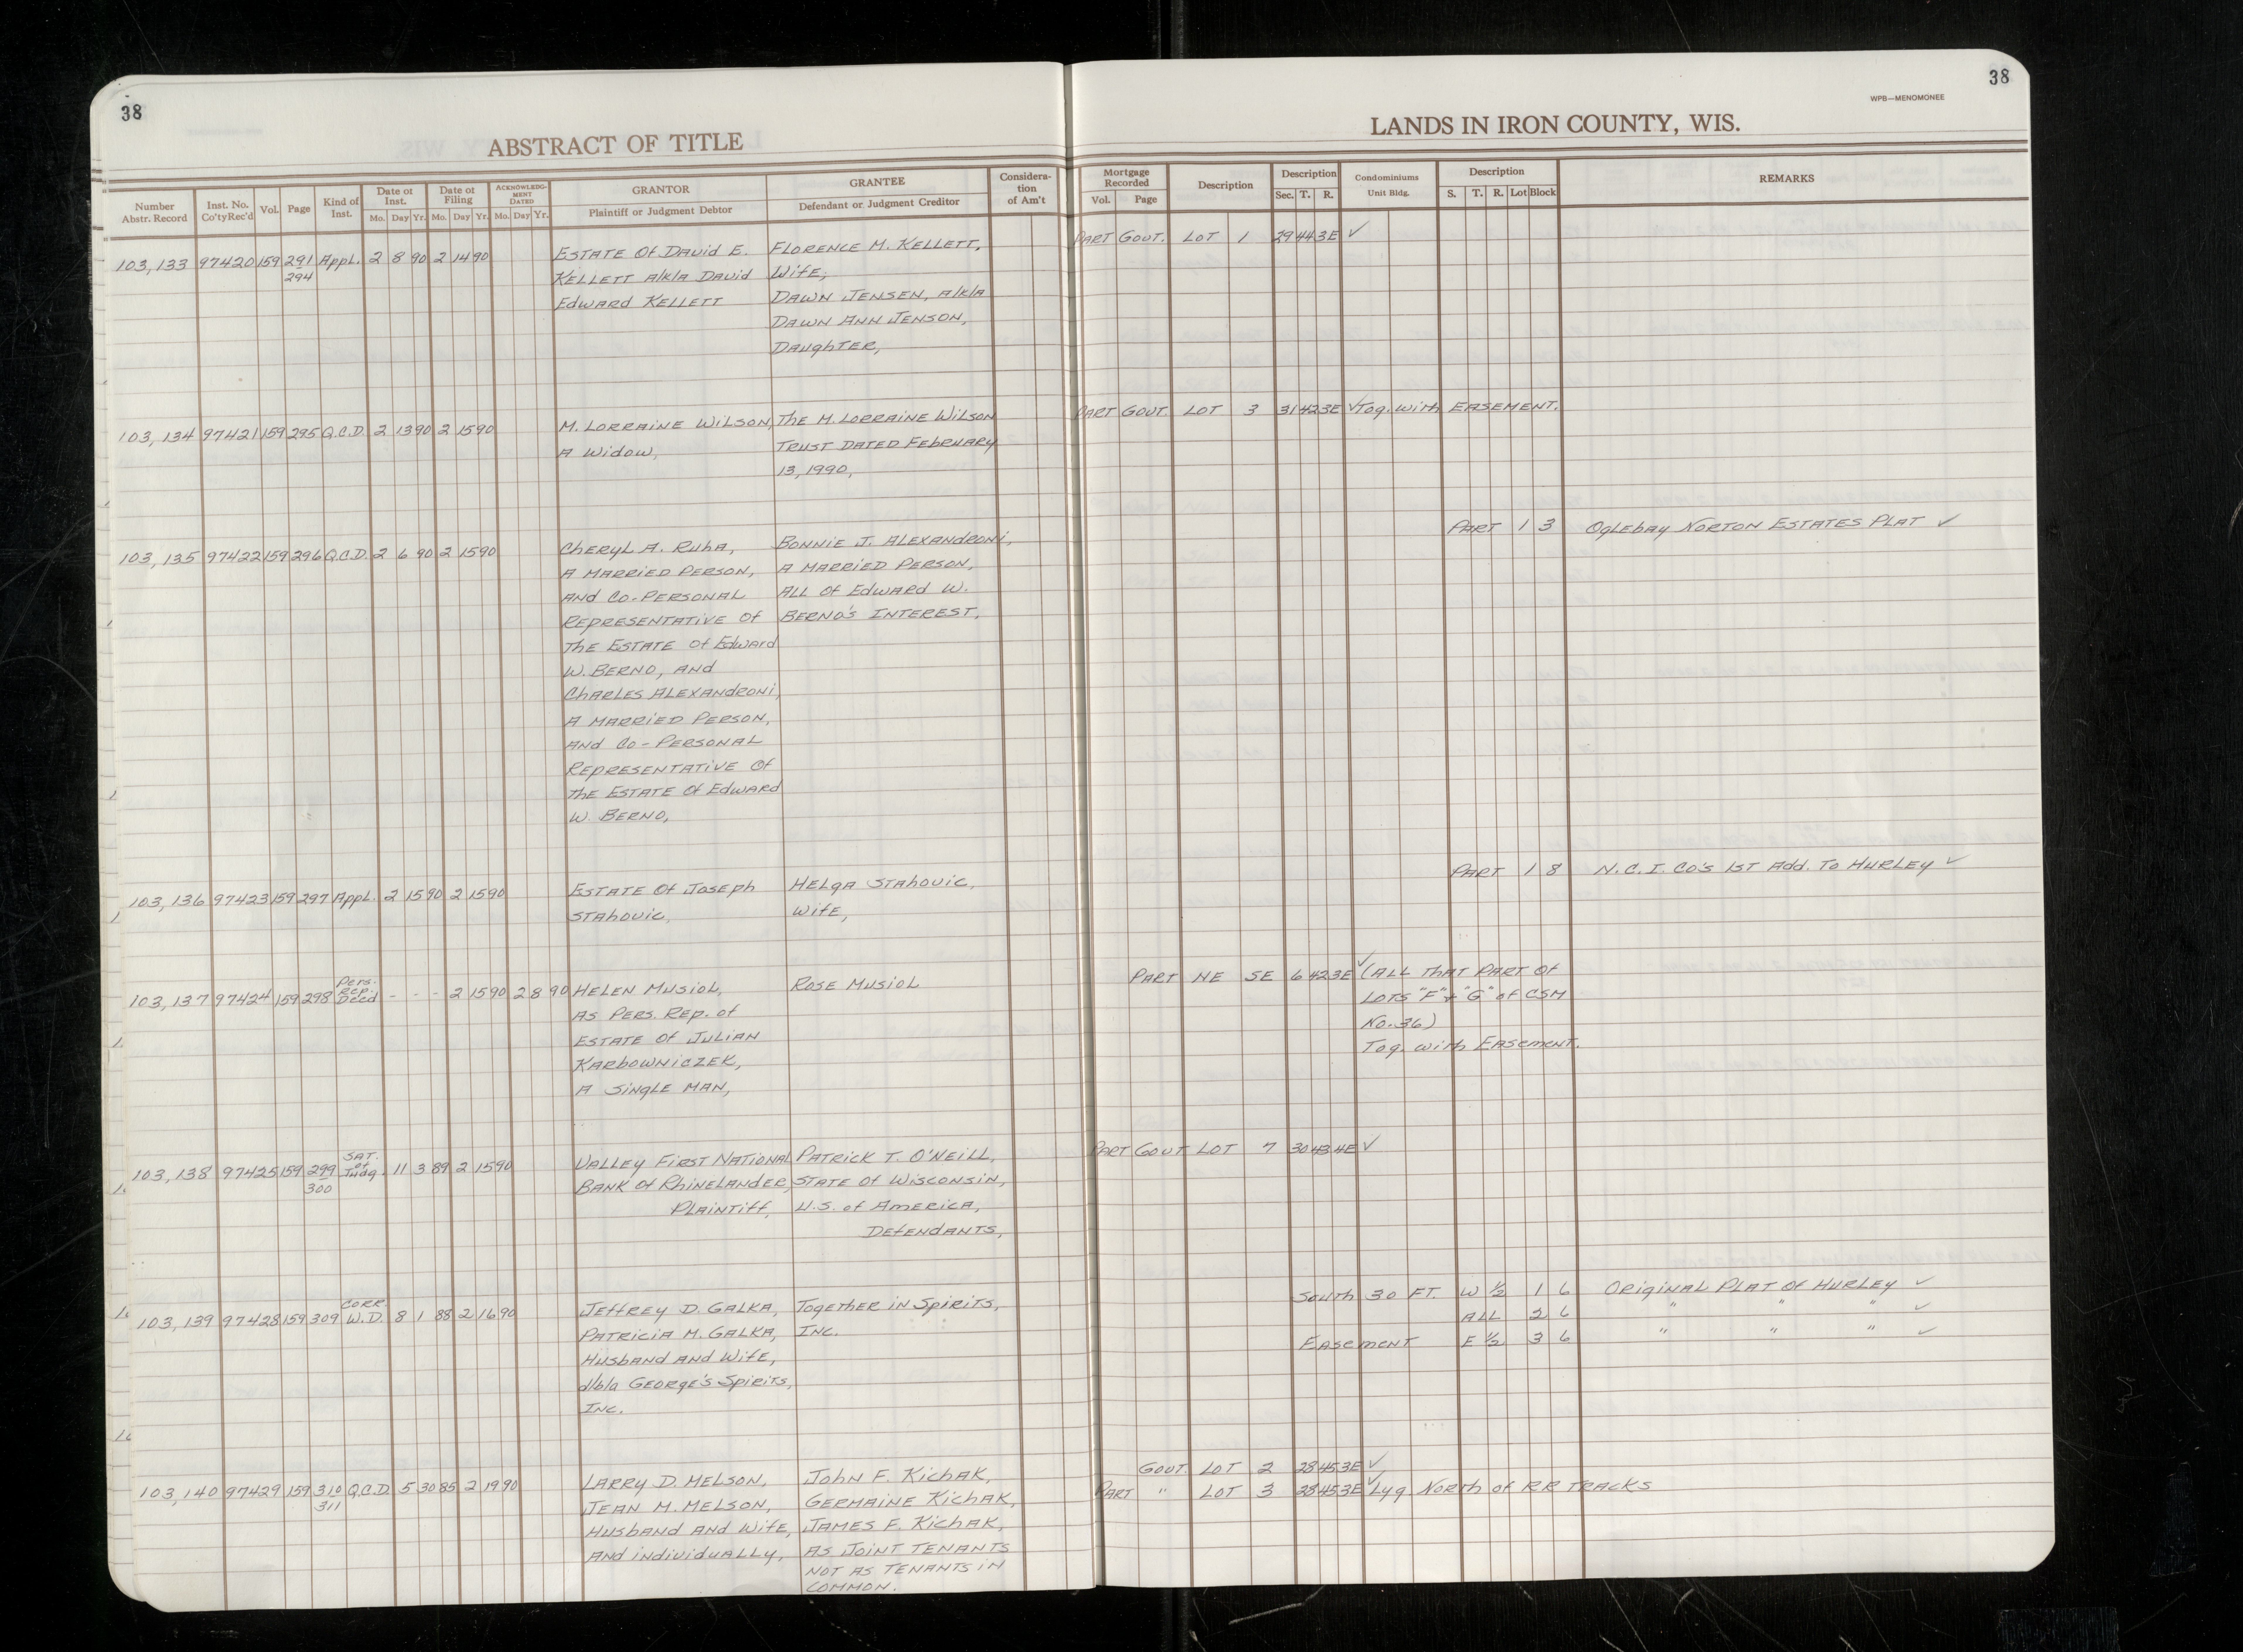 38
38
WPB—MENOMONEE
ABSTRACT OF TITLE
LANDS IN IRON COUNTY, WIS.
Number Abstr. Record
Inst. No. Co'ty Rec'd
Vol.
Page
Kind of Inst.
Date of Inst.
Mo. Day Yr.
Date of Filing
Mo. Day Yr.
ACKNOWLEDGMENT DATED
Mo. Day Yr.
GRANTOR
Plaintiff or Judgment Debtor
GRANTEE
Defendant or Judgment Creditor
Consideration of Am't
Mortgage Recorded
Vol. Page
Description
Description
Sec. T. R.
Condominiums
Unit Bldg.
Description
S. T. R. Lot Block
REMARKS
103,133 97420 159 291 Appl. 2 8 90 2 14 90 Estate of David E. Florence M. Kellett, Part Govt. Lot 1 29 44 3E ✓
294 Kellett a/k/a David Wife,
Edward Kellett Dawn Jensen, a/k/a
Dawn Ann Jenson,
Daughter,
103,134 97421 159 295 Q.C.D. 2 13 90 2 15 90 M. Lorraine Wilson, The M. Lorraine Wilson Part Govt. Lot 3 31 42 3E ✓ Tog. with Easement.
A Widow, Trust dated February
13, 1990,
103,135 97422 159 296 Q.C.D. 2 6 90 2 15 90 Cheryl A. Ruha, Bonnie J. Alexandroni, Part 1 3 Oglebay Norton Estates Plat ✓
A Married Person, A Married Person,
And Co-Personal All of Edward W.
Representative of Berno's Interest,
The Estate of Edward
W. Berno, And
Charles Alexandroni,
A Married Person,
And Co-Personal
Representative of
The Estate of Edward
W. Berno,
103,136 97423 159 297 Appl. 2 15 90 2 15 90 Estate of Joseph Helga Stahovic, Part 1 8 N.C.I. Co's 1st Add. To Hurley ✓
Stahovic, Wife,
103,137 97424 159 298 Pers. Rep. Deed - - - 2 15 90 2 8 90 Helen Musiol, Rose Musiol Part NE SE 6 42 3E ✓ (All that part of
As Pers. Rep. of Lots "F" & "G" of CSM
Estate of Julian No. 36)
Karbowniczek, Tog. with Easement.
A Single Man,
103,138 97425 159 299 Sat. of Judg. 11 3 89 2 15 90 Valley First National Patrick T. O'Neill, Part Govt Lot 7 30 43 4E ✓
300 Bank of Rhinelander, State of Wisconsin,
Plaintiff, U.S. of America,
Defendants,
103,139 97428 159 309 Corr. W.D. 8 1 88 2 16 90 Jeffrey D. Galka, Together in Spirits, South 30 Ft. W ½ 1 6 Original Plat of Hurley ✓
Patricia M. Galka, Inc. All 2 6 " " " ✓
Husband and Wife, Easement E ½ 3 6 " " " ✓
d/b/a George's Spirits,
Inc.
103,140 97429 159 310 Q.C.D. 5 30 85 2 19 90 Larry D. Melson, John F. Kichak, Govt. Lot 2 28 45 3E ✓
311 Jean M. Melson, Germaine Kichak, Part " Lot 3 28 45 3E ✓ Lyg North of RR Tracks
Husband and Wife, James F. Kichak,
And individually, As Joint Tenants
Not as Tenants in
Common.